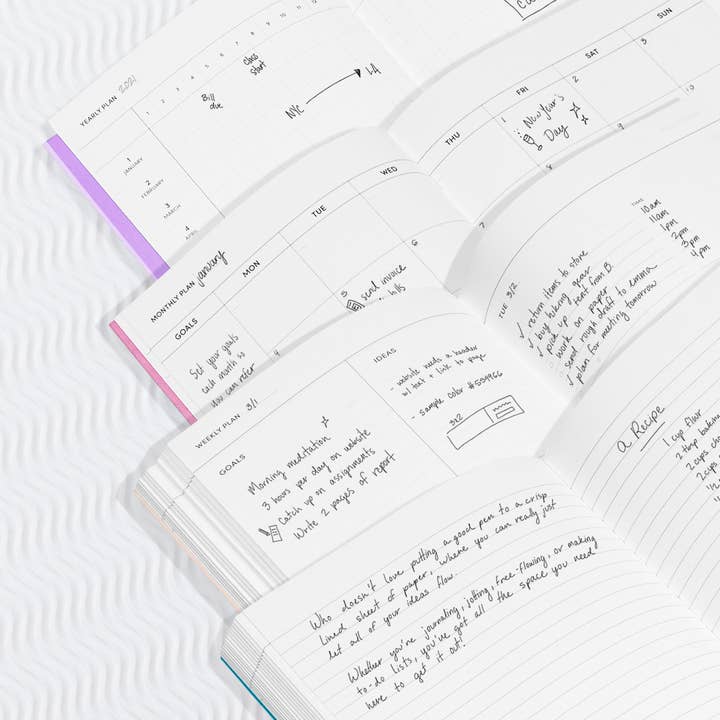 YEARLY PLAN 2021
1 2 3 4 5 6 7 8 9 10 11 12
1
JANUARY
2
FEBRUARY
3
MARCH
4
APRIL
Bill
due
Class
start
NYC
LA
MONTHLY PLAN January
GOALS
MON
TUE
WED
THU
FRI
SAT
SUN
1
2
3
New Year's
Day
5
6
7
8
9
10
send invoice
bills
Set your goals
each month so
you can refer
WEEKLY PLAN 3/1
GOALS
Morning meditation
3 hours per day on website
Catch up on assignments
Write 2 pages of report
IDEAS
- website needs a header
w/ text + link to page
- Sample color #559966
TUE 3/2
✓ return items to store
✓ buy hiking gear
✓ pick up sent from B.
work on paper
✓ send rough draft to emma
✓ plan for meeting tomorrow
TIME
10am
11am
1pm
2pm
3pm
4pm
Who doesn't love putting a good pen to a crisp
lined sheet of paper, where you can really just
let all of your ideas flow.
Whether you're journaling, jotting, free-flowing, or making
to-do lists, you've got all the space you need
here to get it out!
a Recipe
1 cup flour
2 tbsp baking
2 cups
2 cups